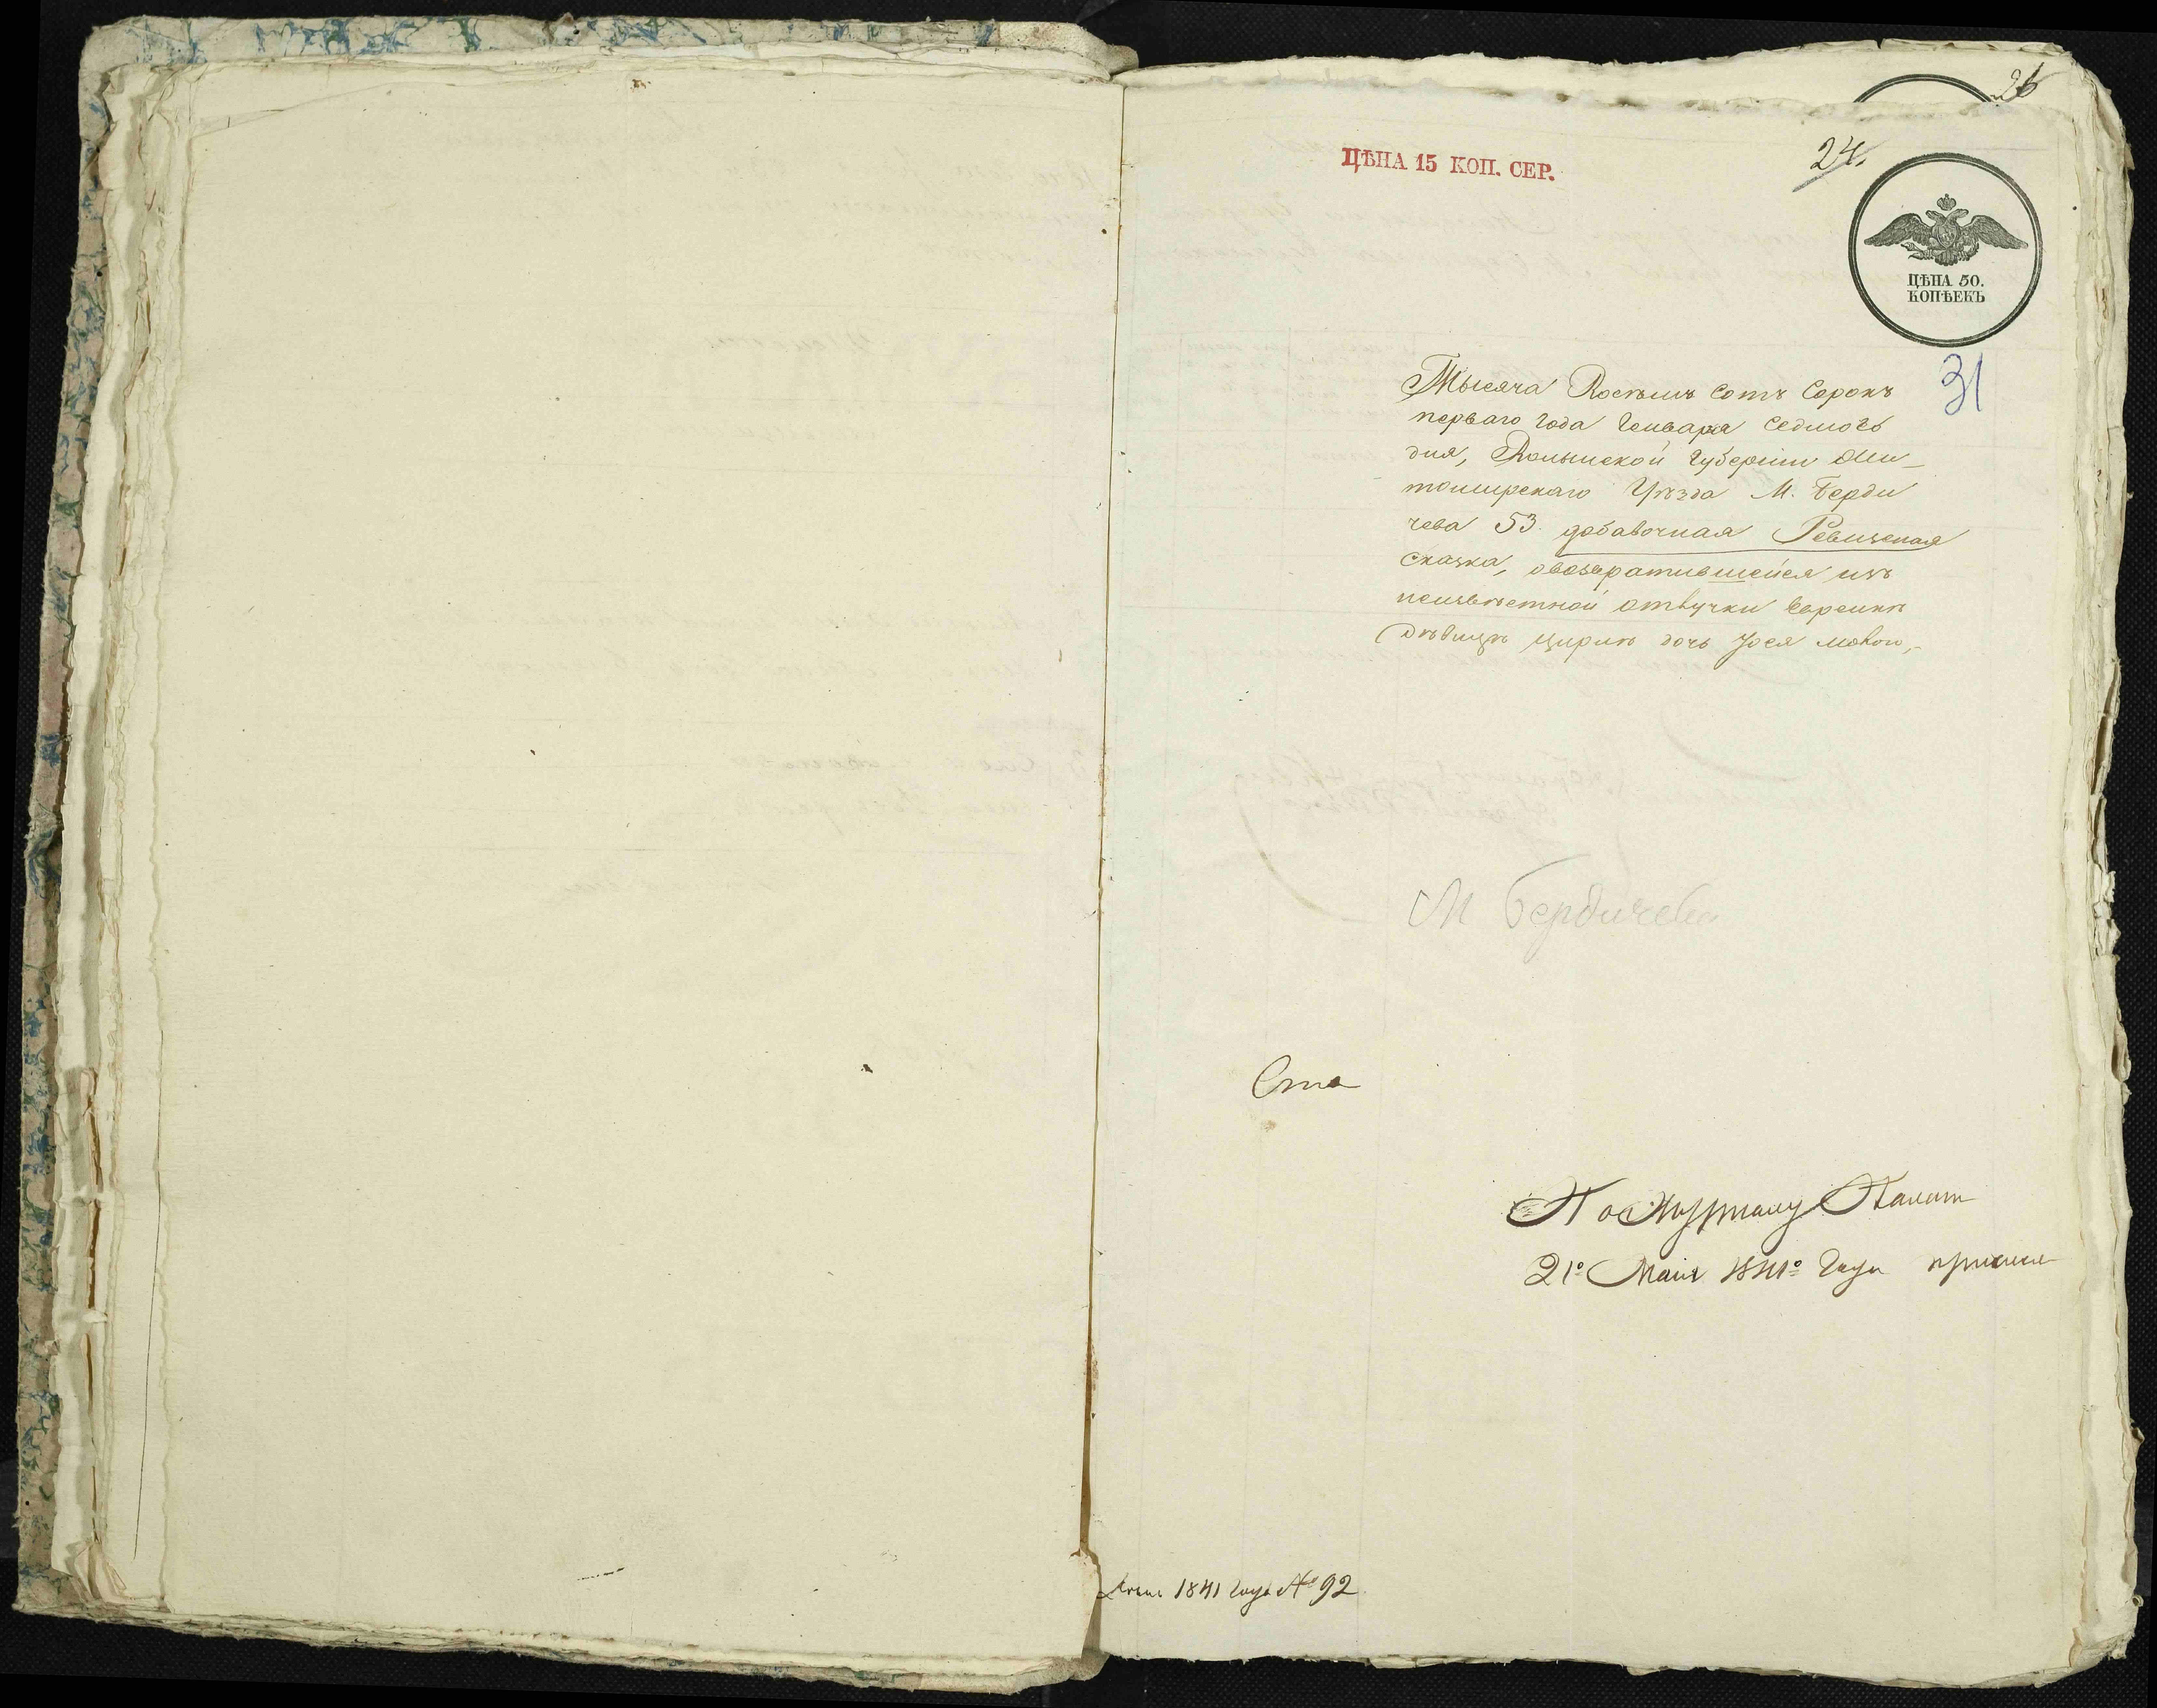 26
24.
ЦѢНА 15 КОП. СЕР.
ЦѢНА 50.
КОПѢЕКЪ
31
Тысяча Восемь сотъ Сорокъ
перваго года Генваря Седмого
дня, Волынской Губерніи Жи-
томирскаго Уѣзда М. Берди
чева 53 добавочная Ревизская
Сказка, овозвратившейся изъ
неизвѣстной отлучки Еврейкѣ
дѣвицѣ Циріи дочь Іося
М Бердичева
По Журналу Палат
21º Маія 1841º Года
1841 года № 92